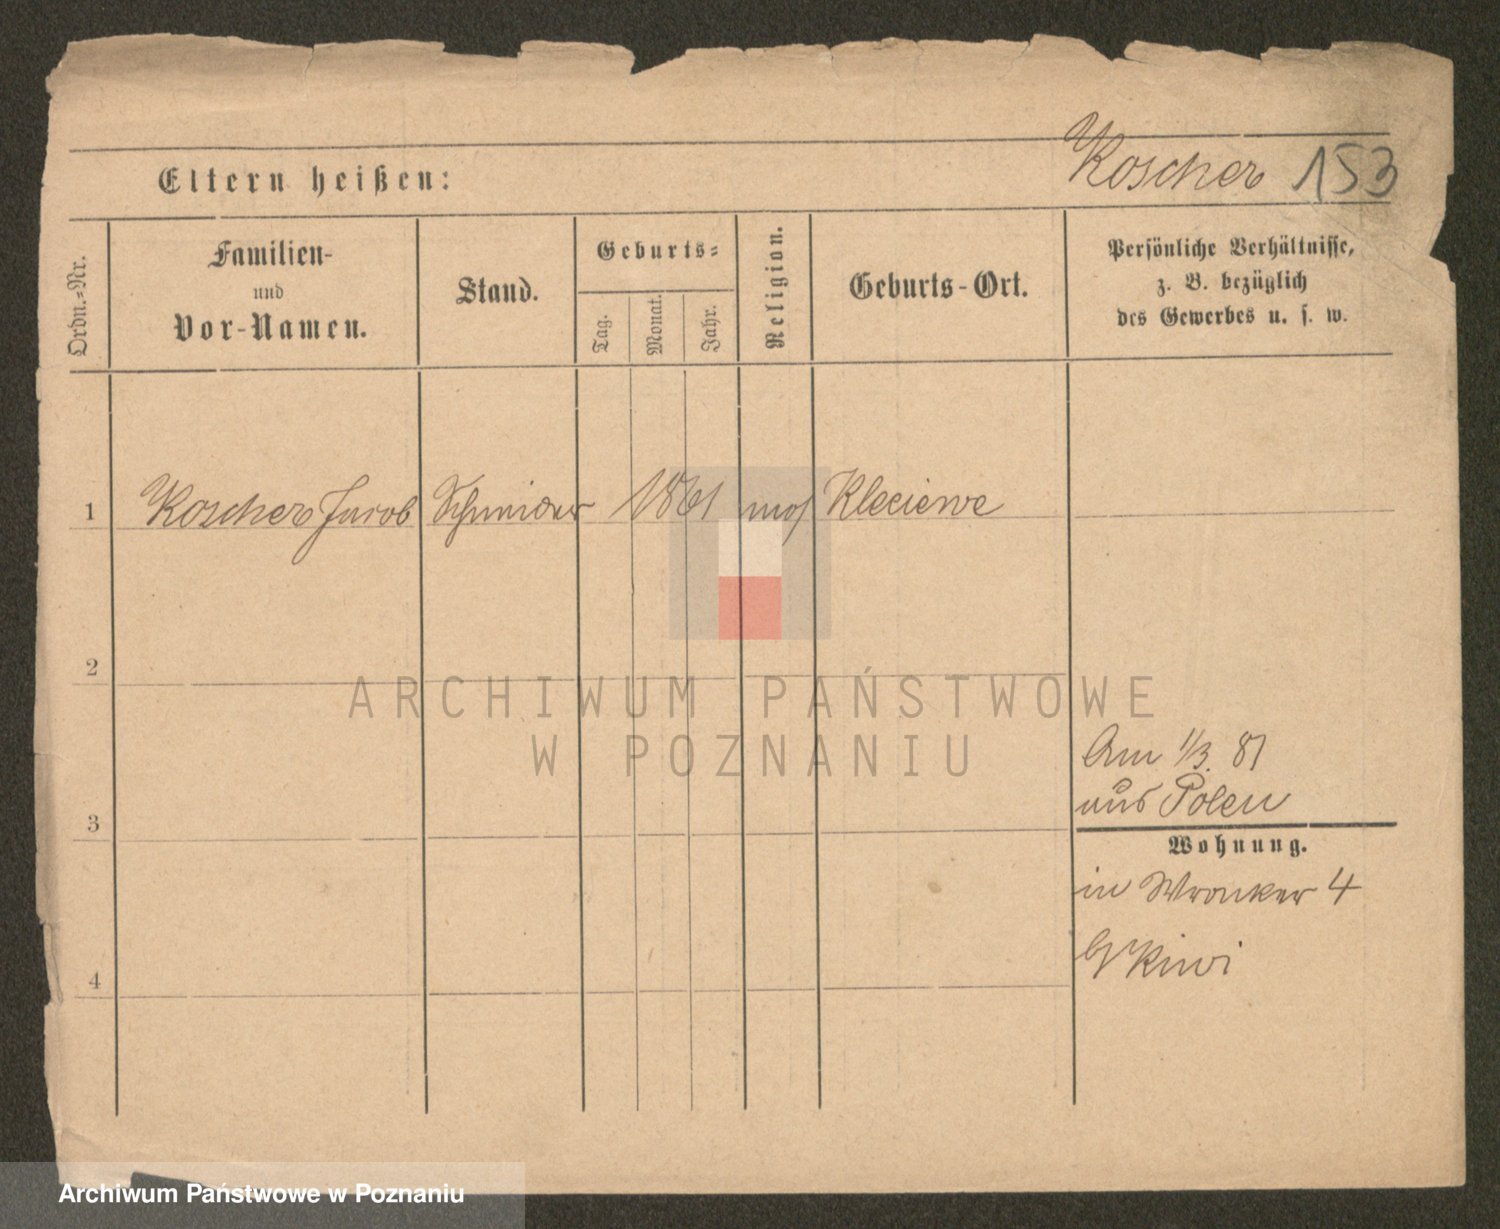 Koscher 153
Eltern heißen:
Ordn.=Nr.
Familien-
und
Vor-Namen.
Stand.
Geburts=
Tag.
Monat.
Jahr.
Religion.
Geburts-Ort.
Persönliche Verhältnisse,
z. B. bezüglich
des Gewerbes u. s. w.
1 Koscher Jacob Schneider 1861 mos Kleciewe
2
ARCHIWUM PAŃSTWOWE
W POZNANIU
Am 1/3. 81
aus Polen
3
Wohnung.
in Wronker 4
4
Archiwum Państwowe w Poznaniu